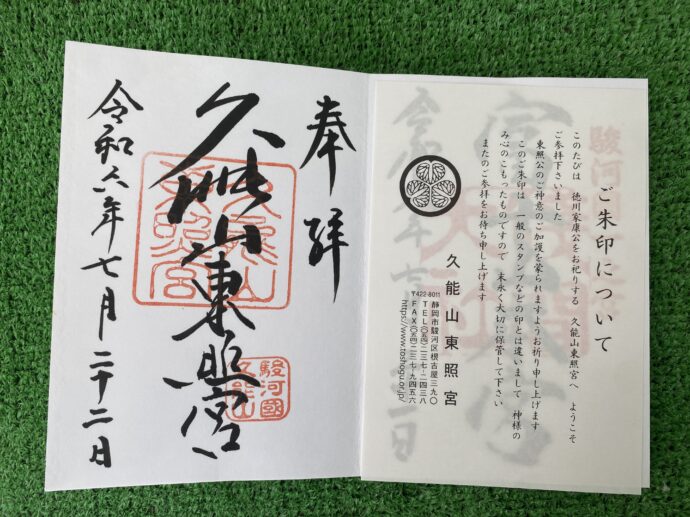 ご朱印について
このたびは　徳川家康公をお祀りする　久能山東照宮へ　ようこそ
ご参拝下さいました
東照公のご神意のご加護を蒙られますようお祈り申し上げます
このご朱印は　一般のスタンプなどの印とは違いまして　神様の
み心のこもったものですので　末永く大切に保管して下さい
またのご参拝をお待ち申し上げます
久能山東照宮
〒422-8011 静岡市駿河区根古屋三九〇
TEL(〇五四)二三七-二四三八
FAX(〇五四)二三七-九四五六
https://www.toshogu.or.jp/
奉拝
久能山東照宮
駿河國
久能山
令和六年七月二十二日